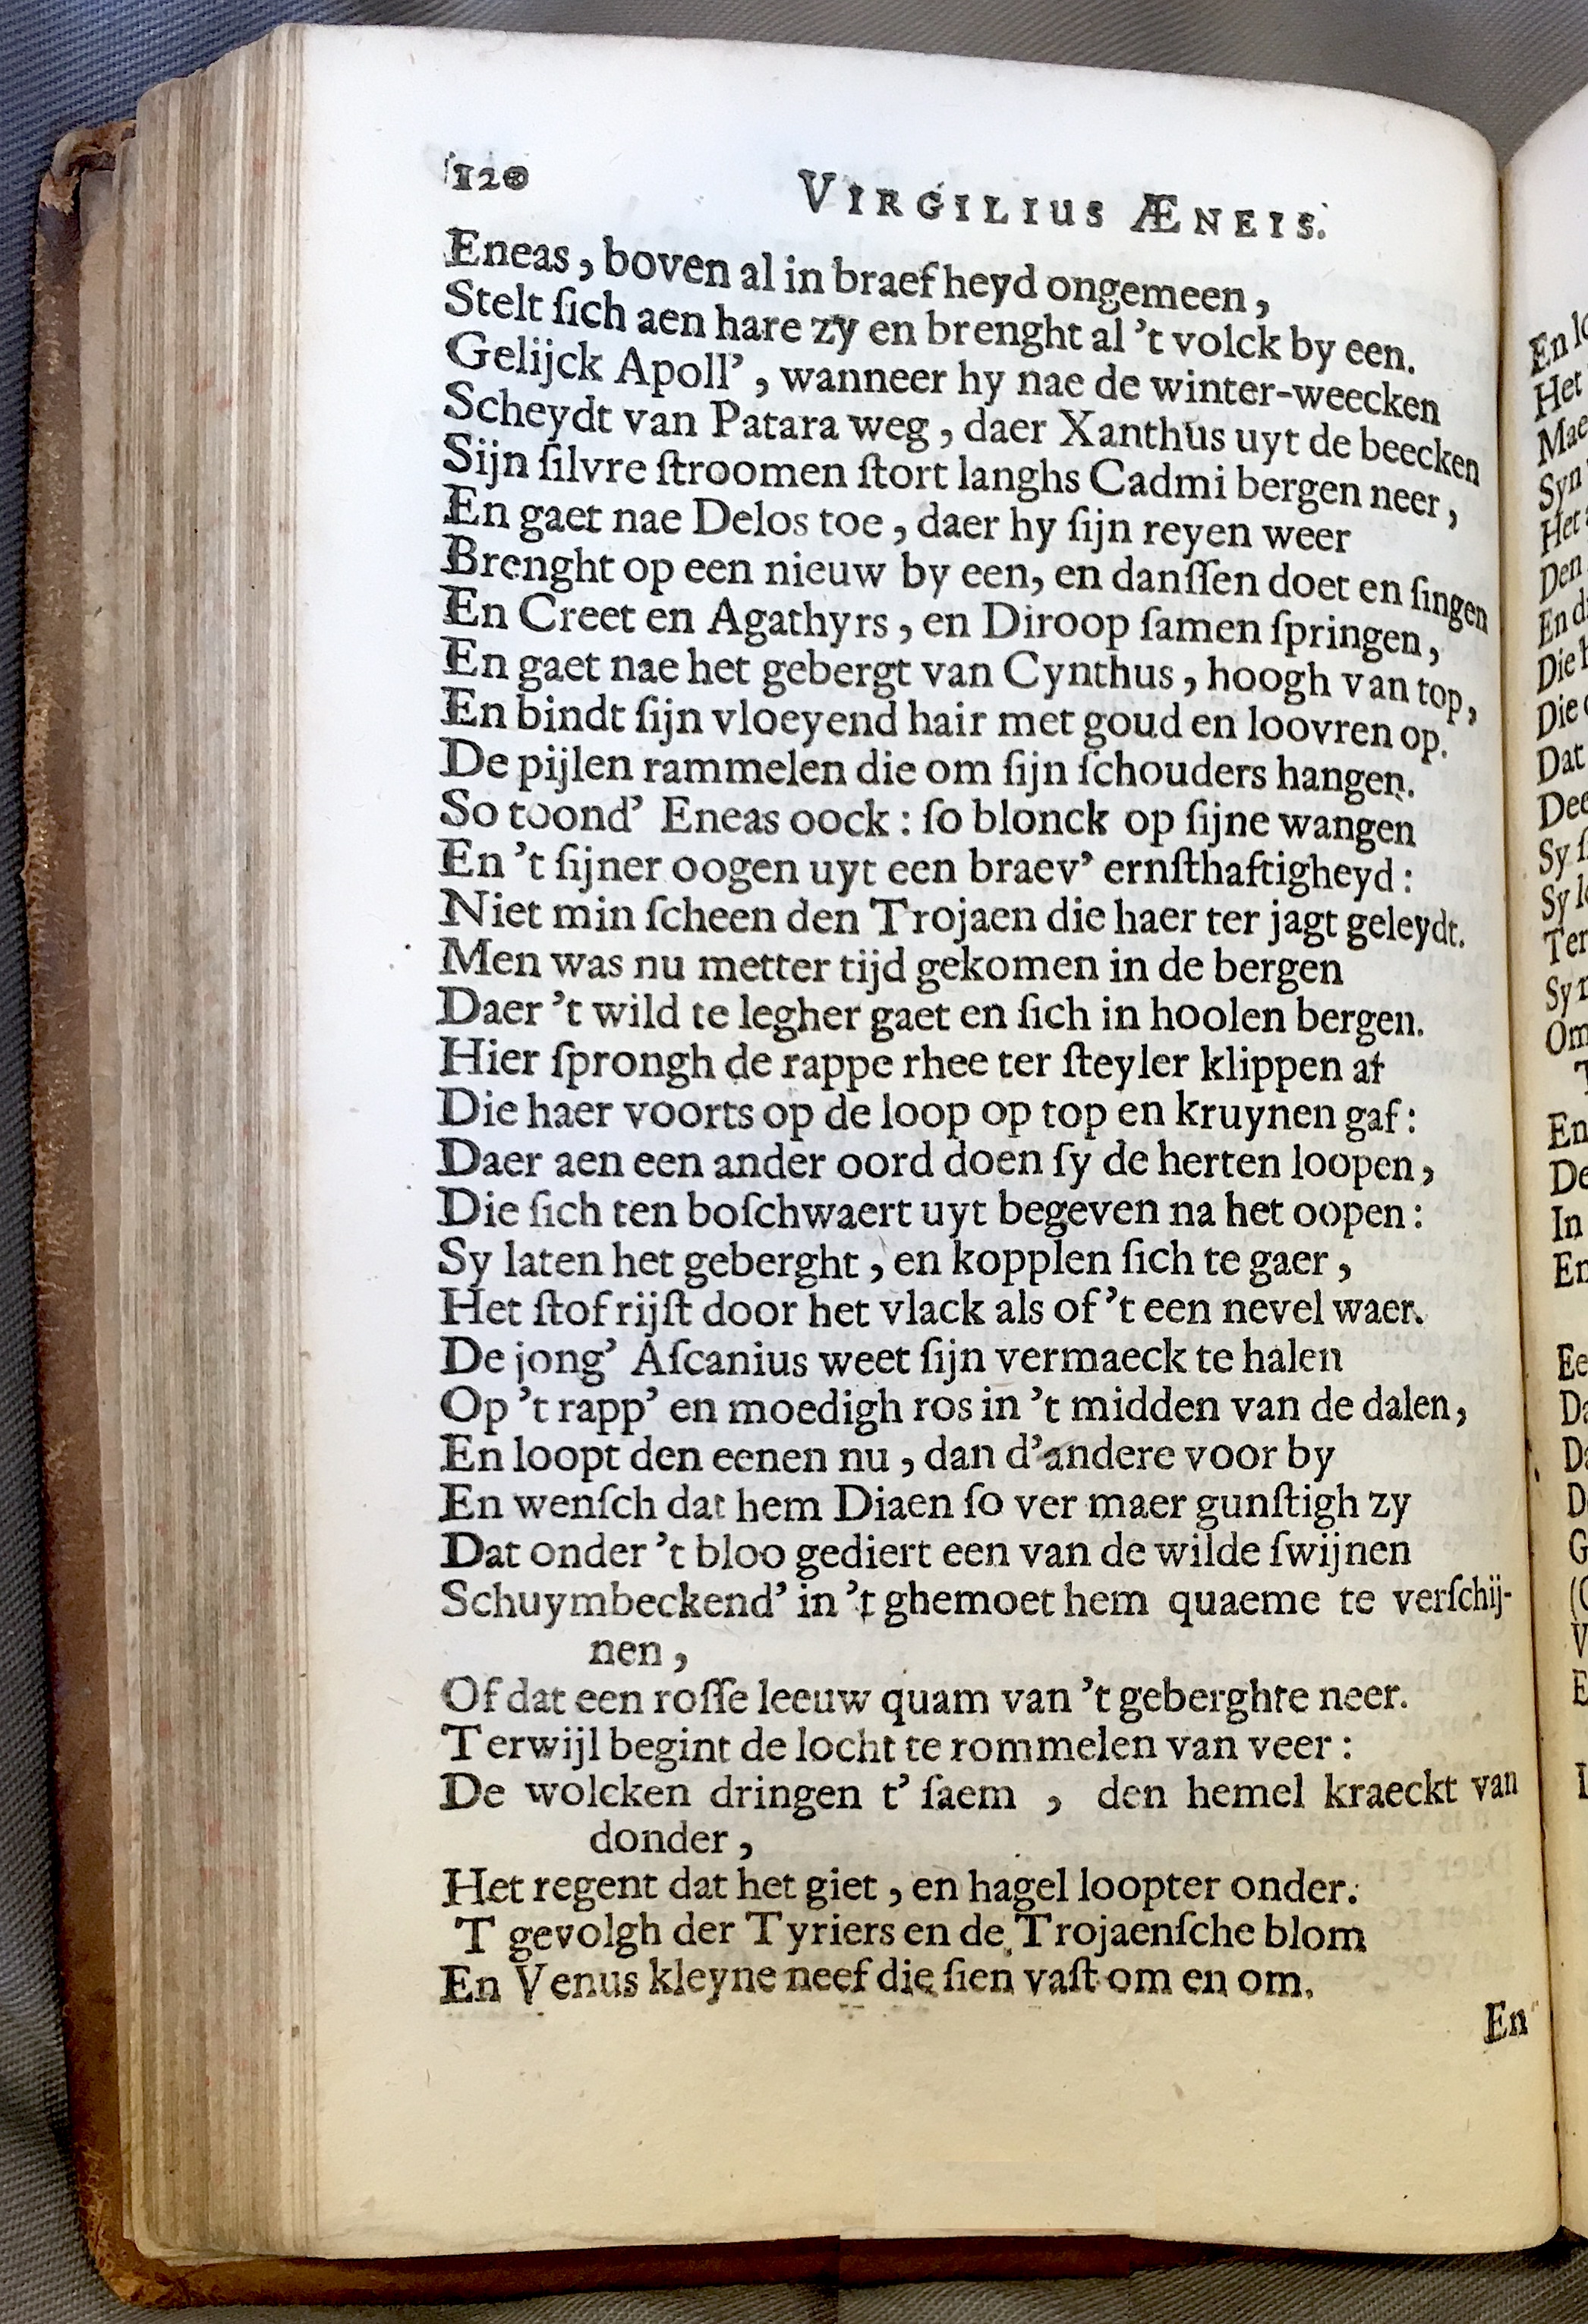 120
VIRGILIUS ÆNEIS.
Eneas, boven al in braefheyd ongemeen,
Stelt ſich aen hare zy en brenght al 't volck by een.
Gelijck Apoll', wanneer hy nae de winter-weecken
Scheydt van Patara weg, daer Xanthus uyt de beecken
Sijn ſilvre ſtroomen ſtort langhs Cadmi bergen neer,
En gaet nae Delos toe, daer hy ſijn reyen weer
Brenght op een nieuw by een, en danſſen doet en ſingen
En Creet en Agathyrs, en Diroop ſamen ſpringen,
En gaet nae het gebergt van Cynthus, hoogh van top,
En bindt ſijn vloeyend hair met goud en loovren op.
De pijlen rammelen die om ſijn ſchouders hangen.
So toond' Eneas oock: ſo blonck op ſijne wangen
En 't ſijner oogen uyt een braev' ernſthaftigheyd:
Niet min ſcheen den Trojaen die haer ter jagt geleydt.
Men was nu metter tijd gekomen in de bergen
Daer 't wild te legher gaet en ſich in hoolen bergen.
Hier ſprongh de rappe rhee ter ſteyler klippen af
Die haer voorts op de loop op top en kruynen gaf:
Daer aen een ander oord doen ſy de herten loopen,
Die ſich ten boſchwaert uyt begeven na het oopen:
Sy laten het geberght, en kopplen ſich te gaer,
Het ſtof rijſt door het vlack als of 't een nevel waer.
De jong' Aſcanius weet ſijn vermaeck te halen
Op 't rapp' en moedigh ros in 't midden van de dalen,
En loopt den eenen nu, dan d'andere voor by
En wenſch dat hem Diaen ſo ver maer gunſtigh zy
Dat onder 't bloo gediert een van de wilde ſwijnen
Schuymbeckend' in 't ghemoet hem quaeme te verſchij-
nen,
Of dat een roſſe leeuw quam van 't geberghte neer.
Terwijl begint de locht te rommelen van veer:
De wolcken dringen t' ſaem, den hemel kraeckt van
donder,
Het regent dat het giet, en hagel loopter onder.
T gevolgh der Tyriers en de Trojaenſche blom
En Venus kleyne neef die ſien vaſt om en om.
En
En
Het
Mae
Syn
Het
Den
En d
Die
Die
Dat
Dee
Sy
Sy
Ter
Sy
Om
En
De
In
En
Ee